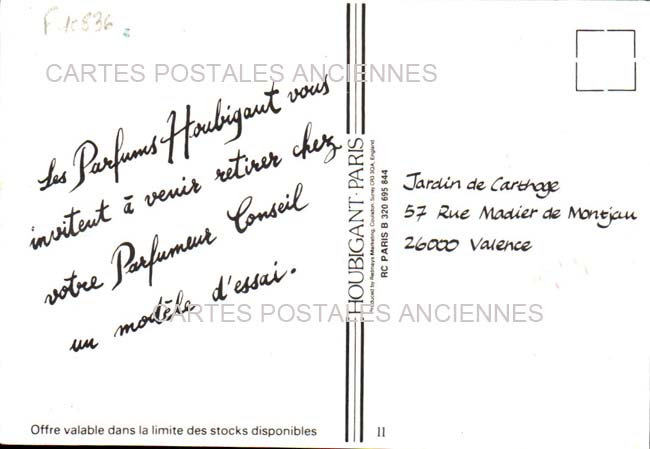 F 10836
CARTES POSTALES ANCIENNES
Les Parfums Houbigant vous
invitent à venir retirer chez
votre Parfumeur Conseil
un modèle d'essai.
CARTES POSTALES ANCIENNES
Offre valable dans la limite des stocks disponibles
HOUBIGANT·PARIS
Produced by Redmays Marketing, Coulsdon, Surrey CR3 3QA, England.
RC PARIS B 320 695 844
11
Jardin de Carthage
57 Rue Madier de Montjau
26000 Valence